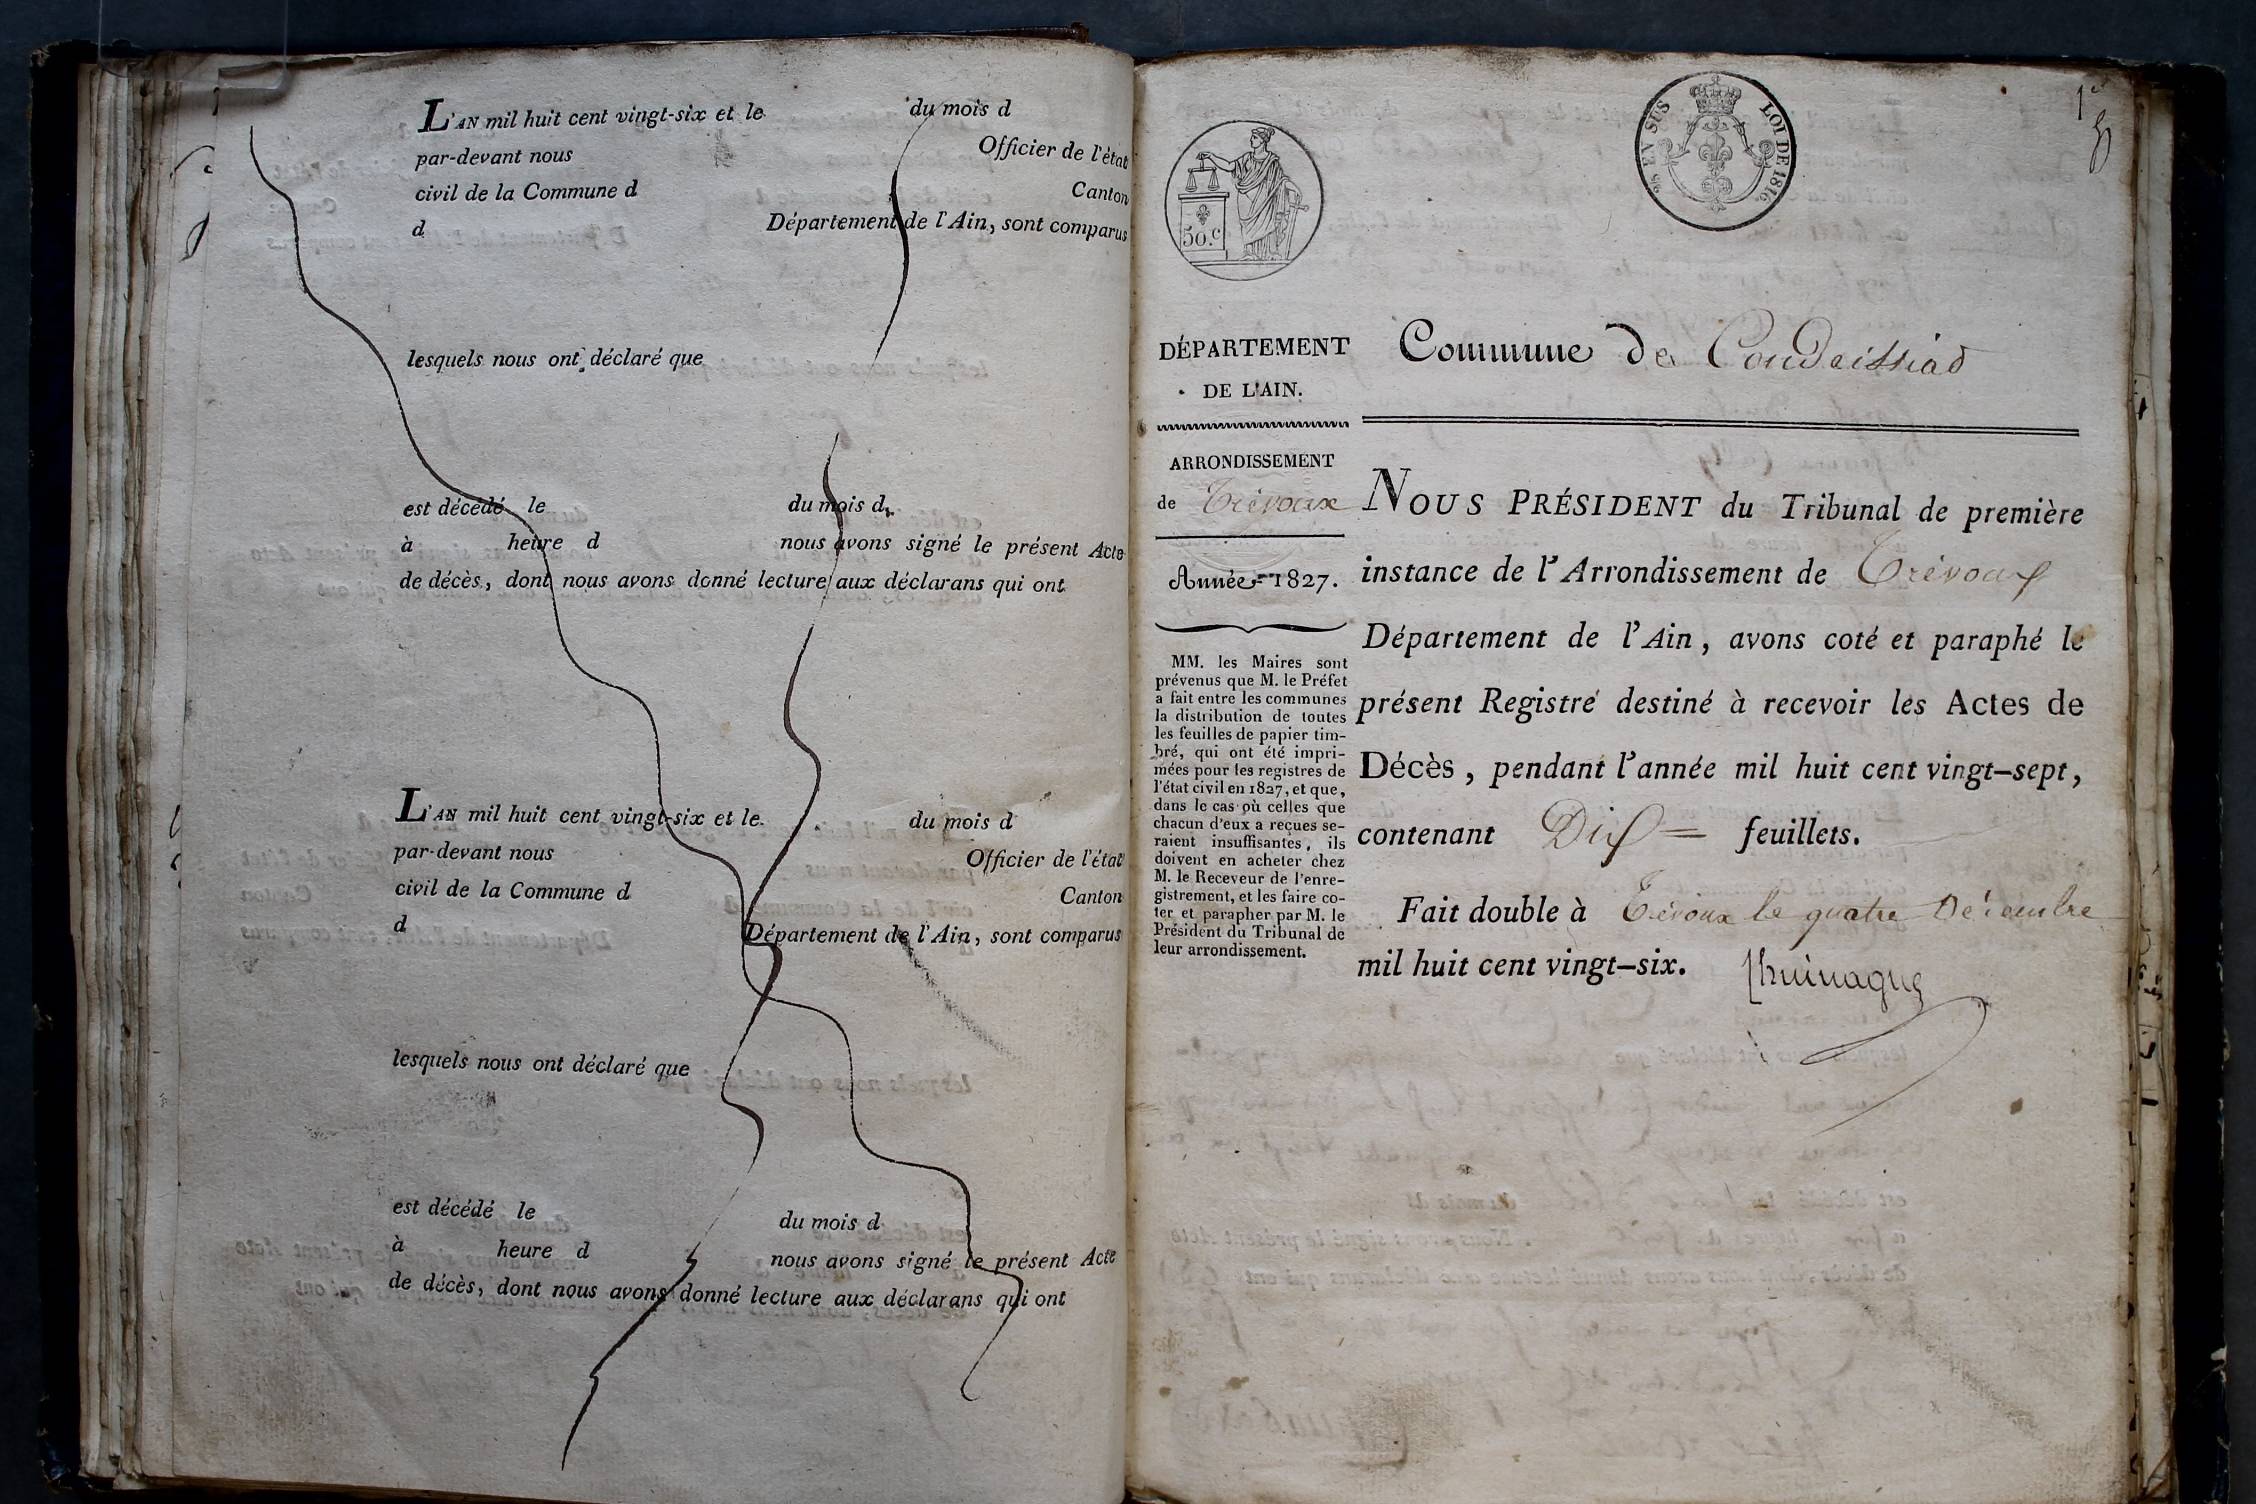 L'AN mil huit cent vingt-six et le du mois d
par-devant nous Officier de l'état
civil de la Commune d Canton
d Département de l'Ain, sont comparus
lesquels nous ont déclaré que
est décédé le du mois d
à heure d nous avons signé le présent Acte
de décès, dont nous avons donné lecture aux déclarans qui ont
L'AN mil huit cent vingt-six et le du mois d
par-devant nous Officier de l'état
civil de la Commune d Canton
d Département de l'Ain, sont comparus
lesquels nous ont déclaré que
est décédé le du mois d
à heure d nous avons signé le présent Acte
de décès, dont nous avons donné lecture aux déclarans qui ont
50.c
EN SUS LOI DE 1816
1er
DÉPARTEMENT
DE L'AIN.
ARRONDISSEMENT
de Trévoux
Année 1827.
MM. les Maires sont
prévenus que M. le Préfet
a fait entre les communes
la distribution de toutes
les feuilles de papier tim-
bré, qui ont été impri-
mées pour les registres de
l'état civil en 1827, et que,
dans le cas où celles que
chacun d'eux a reçues se-
raient insuffisantes, ils
doivent en acheter chez
M. le Receveur de l'enre-
gistrement, et les faire co-
ter et parapher par M. le
Président du Tribunal de
leur arrondissement.
Commune de Condeissiat
NOUS PRÉSIDENT du Tribunal de première
instance de l'Arrondissement de Trévoux
Département de l'Ain, avons coté et paraphé le
présent Registre destiné à recevoir les Actes de
Décès, pendant l'année mil huit cent vingt-sept,
contenant Dix feuillets.
Fait double à Trévoux le quatre Décembre
mil huit cent vingt-six.